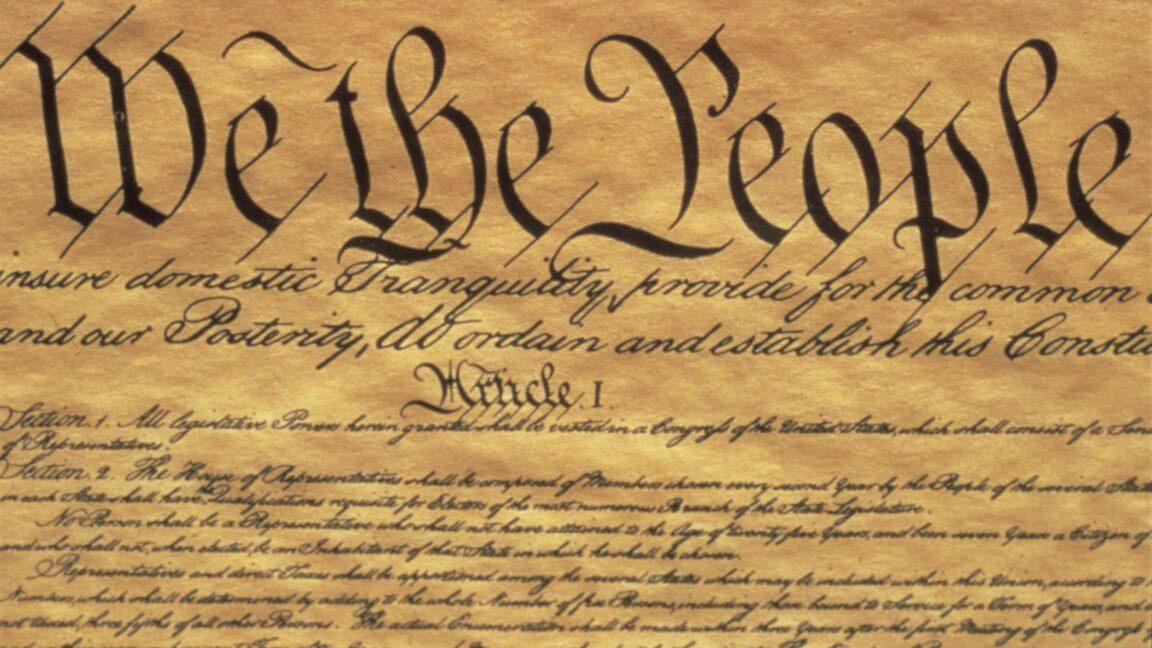 We the People
insure domestic Tranquility, provide for the common
and our Posterity, do ordain and establish this Constit
Article. I.
Section. 1. All legislative Powers herein granted shall be vested in a Congress of the United States, which shall consist of a Sen
of Representatives.
Section. 2. The House of Representatives shall be composed of Members chosen every second Year by the People of the several State
in each State shall have the Qualifications requisite for Electors of the most numerous Branch of the State Legislature.
No Person shall be a Representative who shall not have attained to the Age of twenty five Years, and been seven Years a Citizen of
and who shall not, when elected, be an Inhabitant of that State in which he shall be chosen.
Representatives and direct Taxes shall be apportioned among the several States which may be included within this Union, according to
Numbers, which shall be determined by adding to the whole Number of free Persons, including those bound to Service for a Term of Years, and
not taxed, three fifths of all other Persons. The actual Enumeration shall be made within three Years after the first Meeting of the Congress